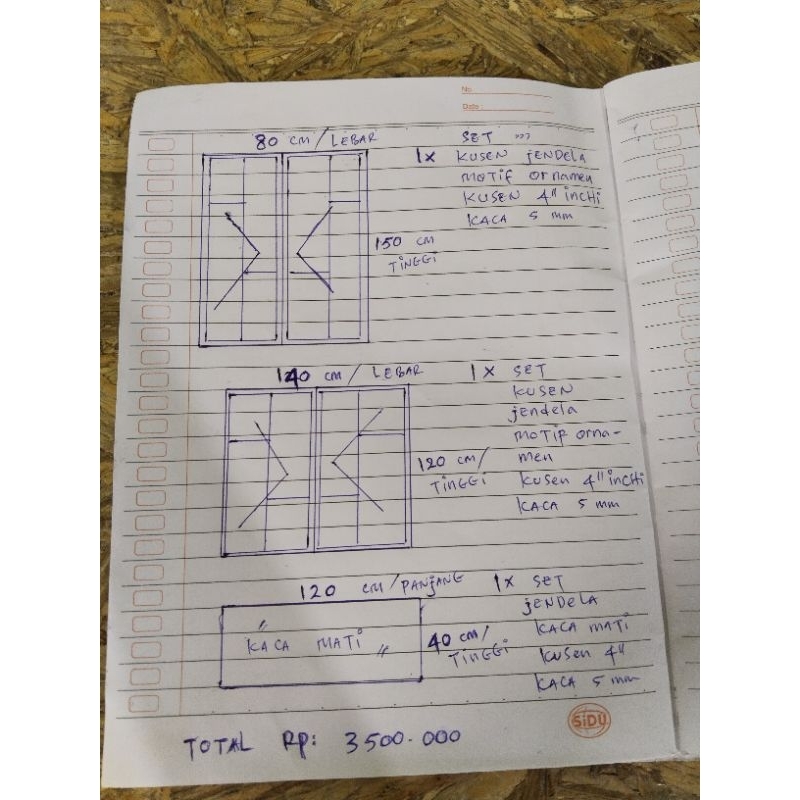 No.
Date
80 cm / LEBAR
SET
1x KUSEN jENDELA
MOTIF Ornamen
KUSEN 4" inCHi
KACA 5 mm
150 cm
TiNGGi
140 cm / LEBAR
1 x SET
KUSEN
jendela
MOTIF orna-
men
KUSEN 4" inCHi
KACA 5 mm
120 cm/
TiNGGi
120 cm/PANjANG
1x SET
jENDELA
KACA MATi
KUSEN 4"
KACA 5 mm
" KACA MATi "
40 cm/
TiNGGi
SiDU
TOTAL Rp: 3500.000